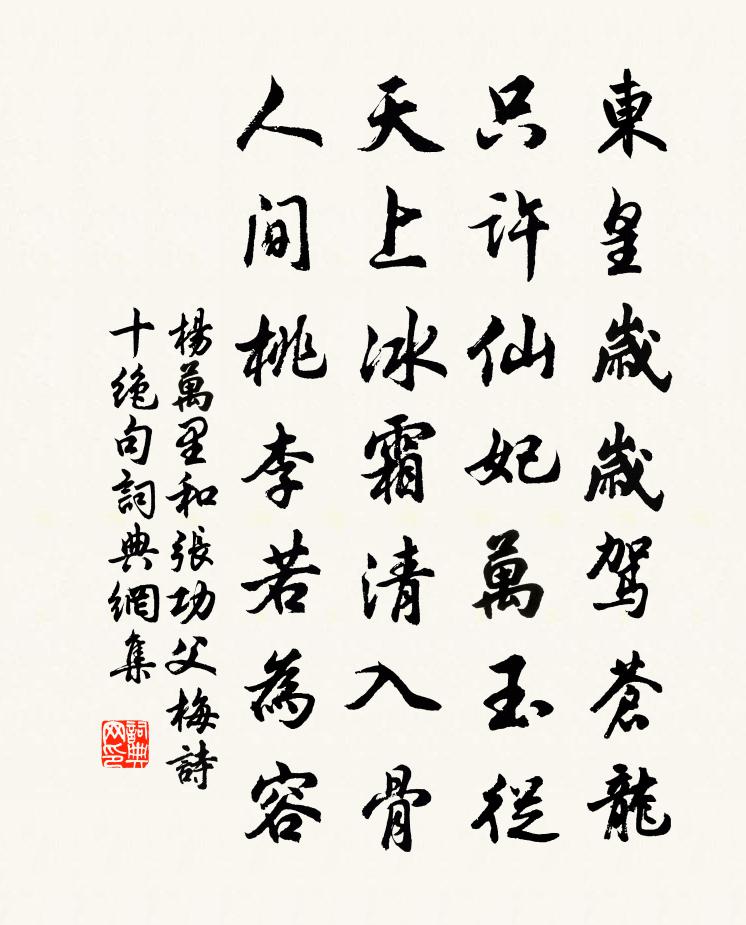 東皇歲歲駕蒼龍
只許仙妃萬玉從
天上冰霜清入骨
人间桃李若為容
楊萬里和張功父梅詩
十絶句詞典網集
詞典网印